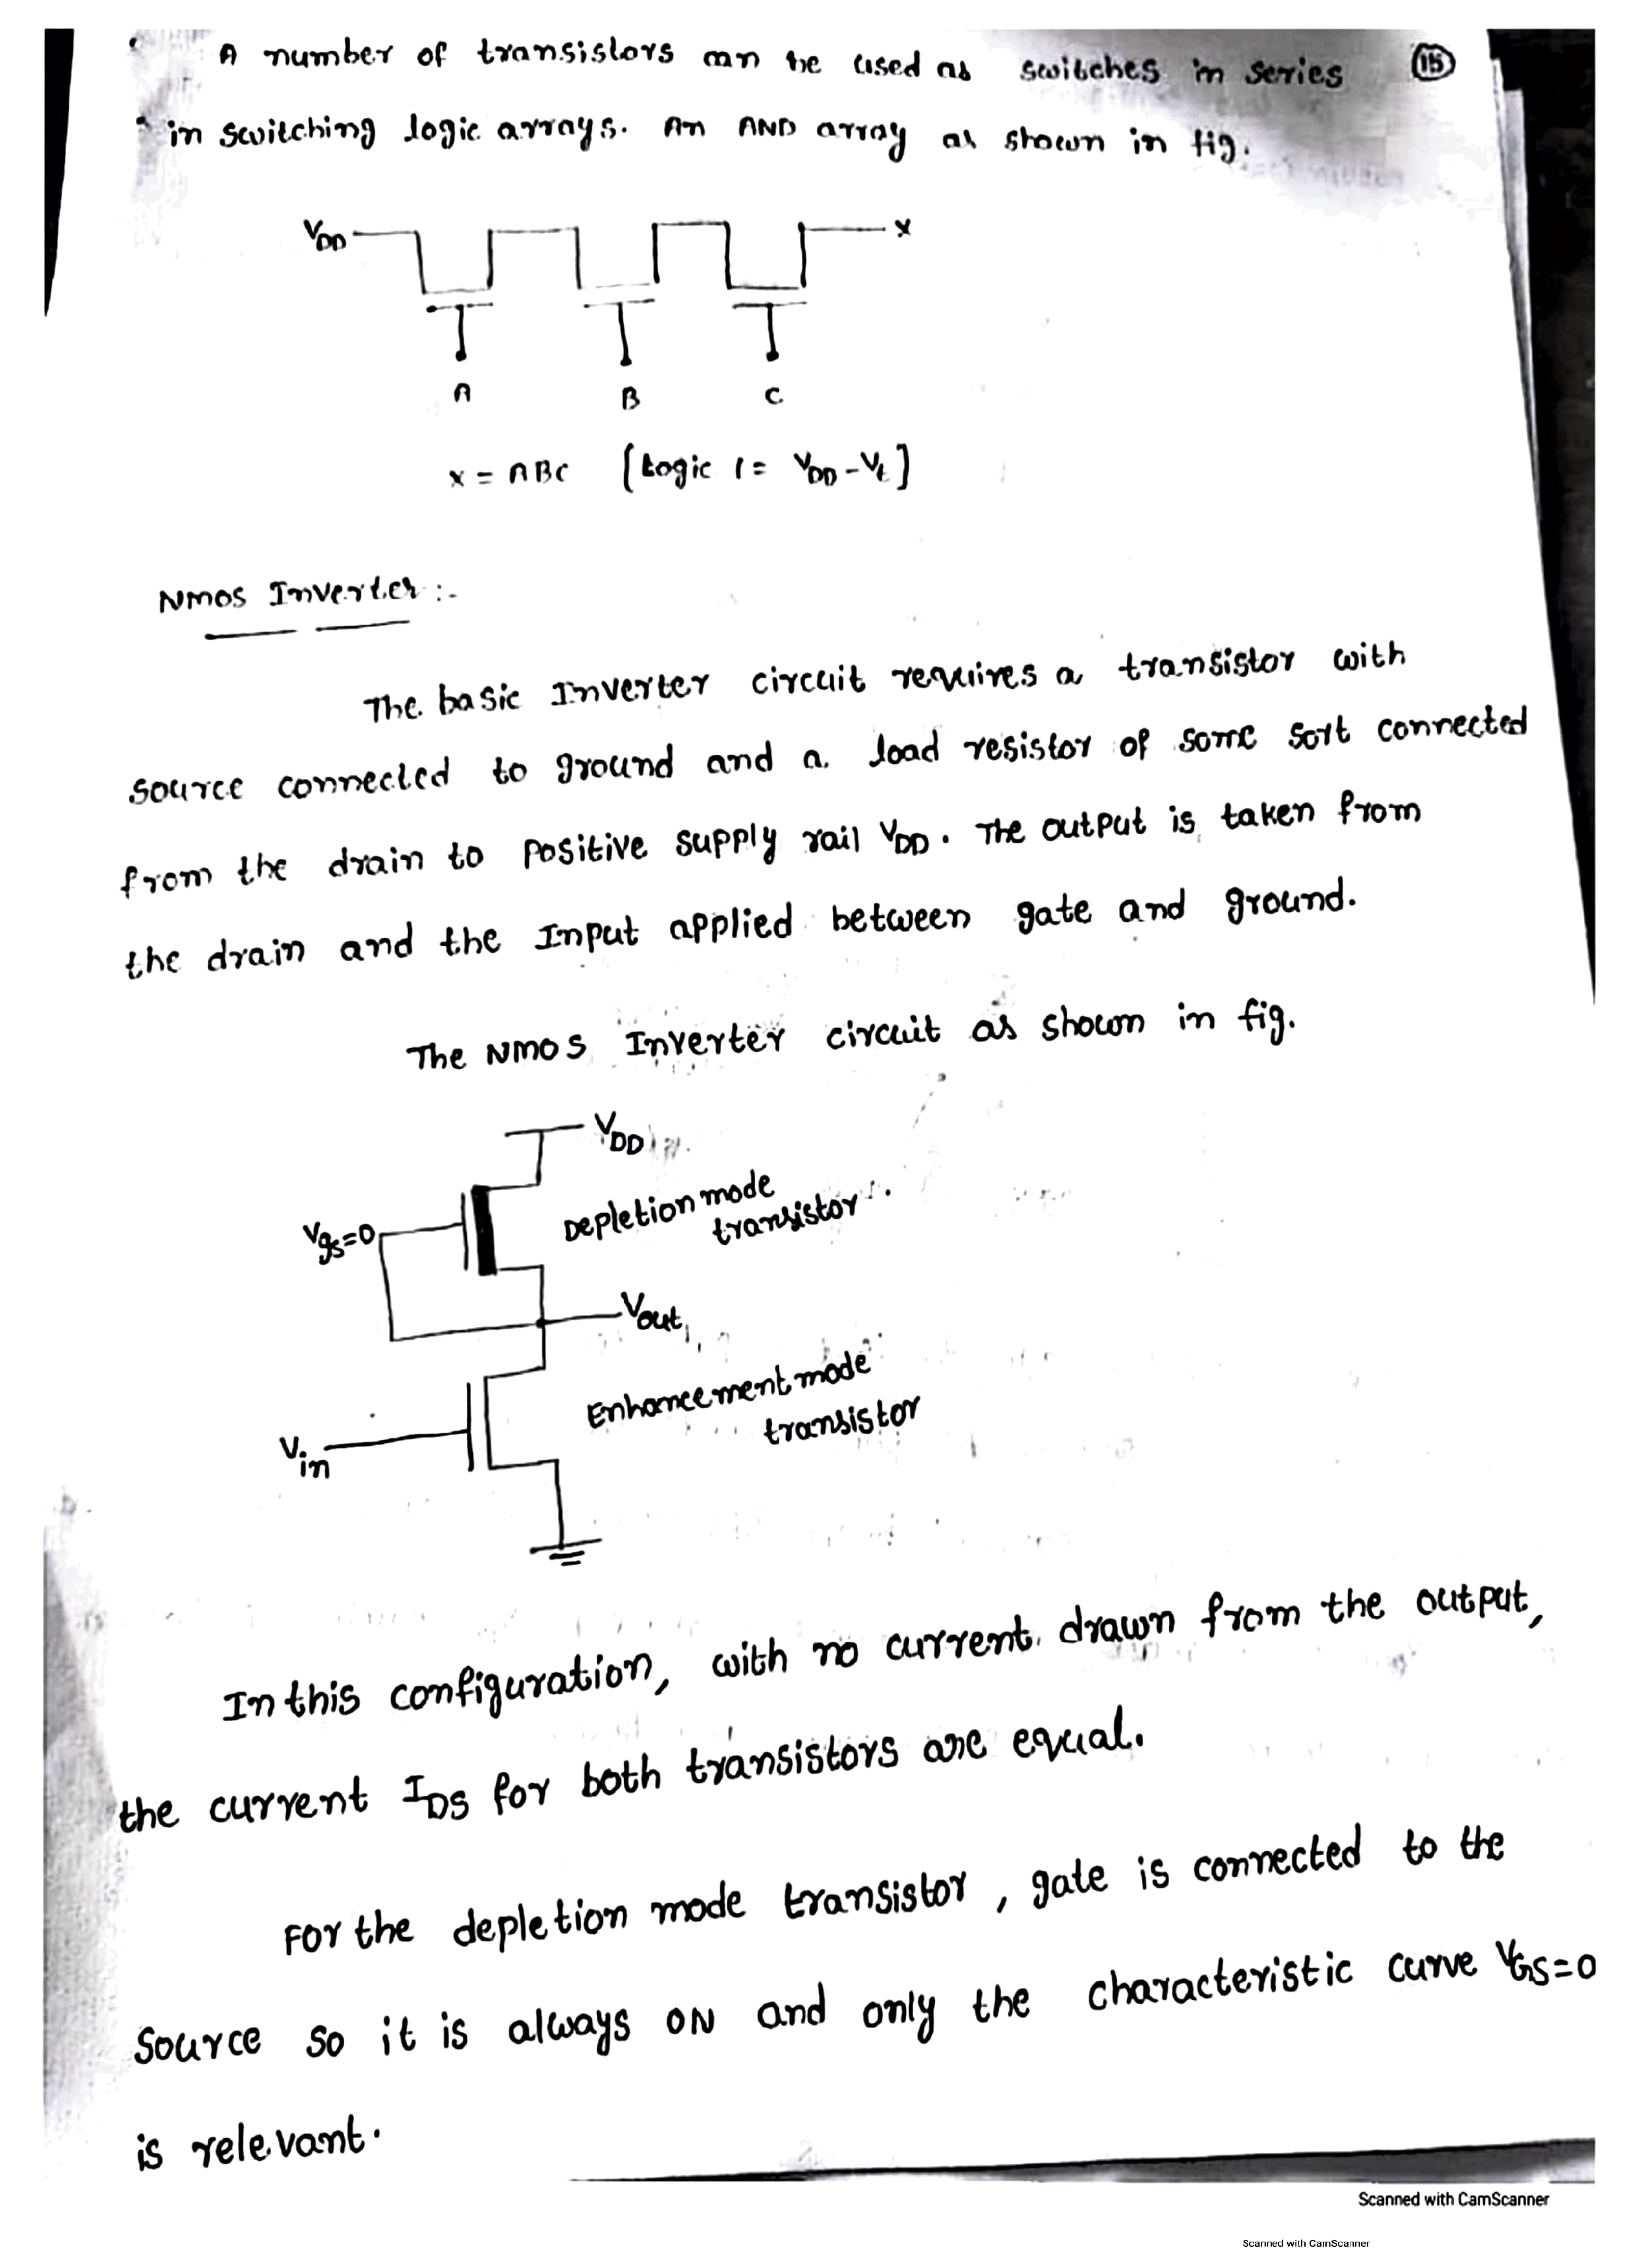 A number of transistors can be used as switches in series
15
in switching logic arrays. An AND array as shown in fig.
VDD
X
A
B
C
X = ABC [Logic 1 = VDD - Vt]
NMOS Inverter :-
The basic Inverter circuit requires a transistor with
source connected to ground and a load resistor of some sort connected
from the drain to positive supply rail VDD. The output is taken from
the drain and the Input applied between gate and ground.
The NMOS Inverter circuit as shown in fig.
VDD
Depletion mode
transistor
Vgs=0
Vout
Enhancement mode
transistor
Vin
In this configuration, with no current drawn from the output,
the current IDS for both transistors are equal.
For the depletion mode transistor, gate is connected to the
source so it is always ON and only the characteristic curve VGS=0
is relevant.
Scanned with CamScanner
Scanned with CamScanner